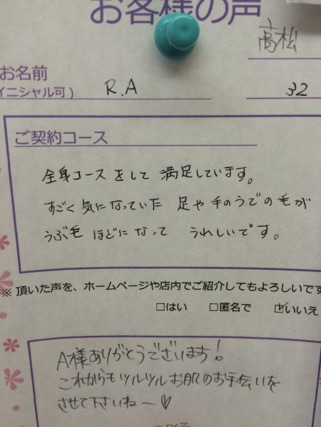 お客様の声
高松
お名前
イニシャル可） R.A 32
ご契約コース
全身コースをして 満足しています。
すごく気になっていた 足や手のうでの毛が
うぶ毛ほどになって うれしいです。
※頂いた声を、ホームページや店内でご紹介してもよろしいです
□はい □匿名で ☑いいえ
A様ありがとうございます！
これからもツルツルお肌のお手伝いを
させて下さいねー♡